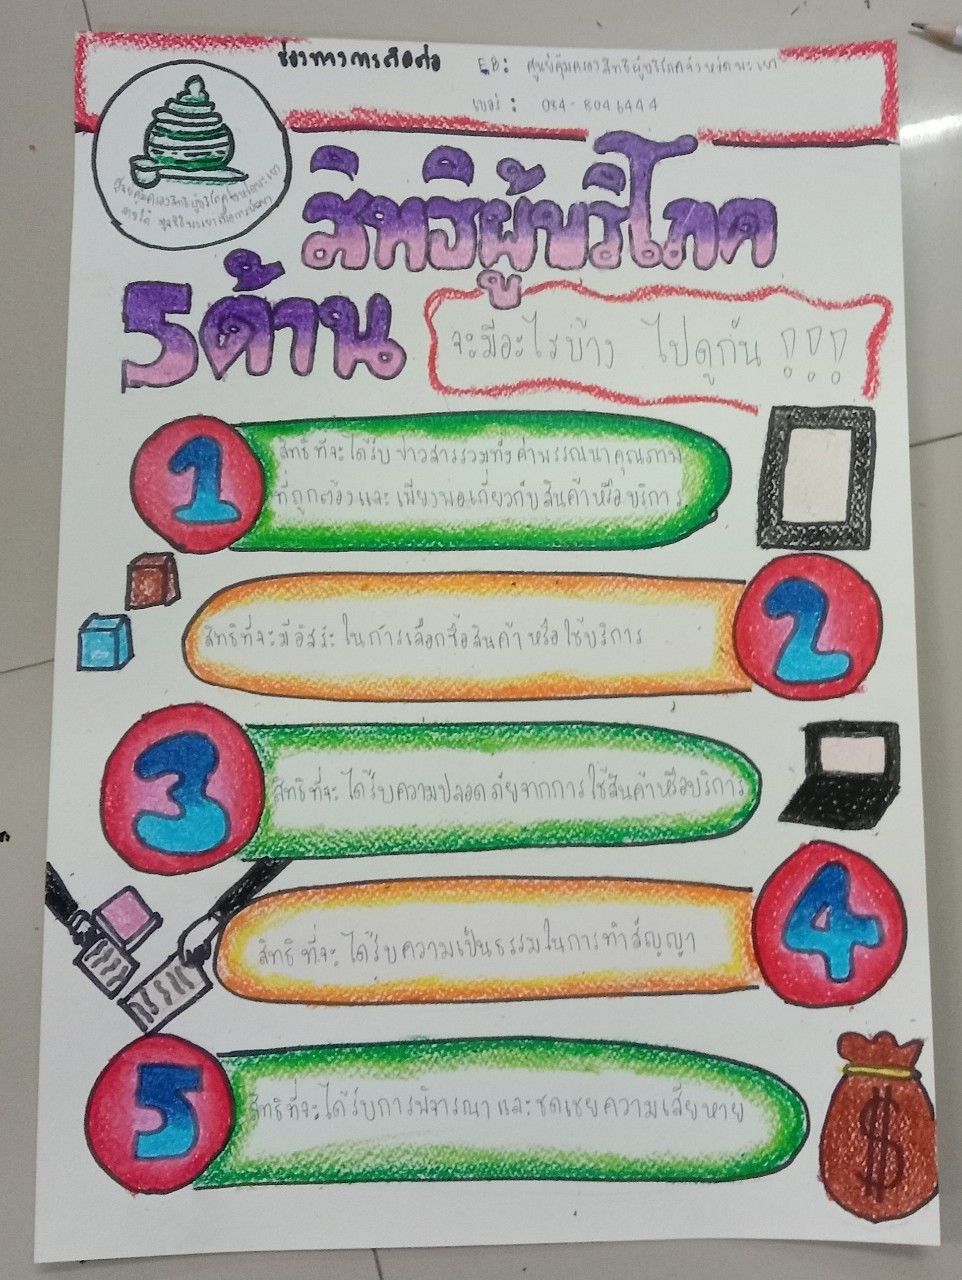 ช่องทางการติดต่อ
FB: ศูนย์คุ้มครองสิทธิผู้บริโภคจังหวัดพะเยา
เบอร์ : 084-8046444
ศูนย์คุ้มครองสิทธิผู้บริโภคจังหวัดพะเยา
ภายใต้
สิทธิผู้บริโภค
5ด้าน
จะมีอะไรบ้าง ไปดูกัน !!!
1
สิทธิที่จะได้รับข่าวสารรวมทั้งคำพรรณนาคุณภาพ
ที่ถูกต้องและเพียงพอเกี่ยวกับสินค้าหรือบริการ
2
สิทธิที่จะมีอิสระในการเลือกซื้อสินค้าหรือใช้บริการ
3
สิทธิที่จะได้รับความปลอดภัยจากการใช้สินค้าหรือบริการ
4
สิทธิที่จะได้รับความเป็นธรรมในการทำสัญญา
5
สิทธิที่จะได้รับการพิจารณาและชดเชยความเสียหาย
$